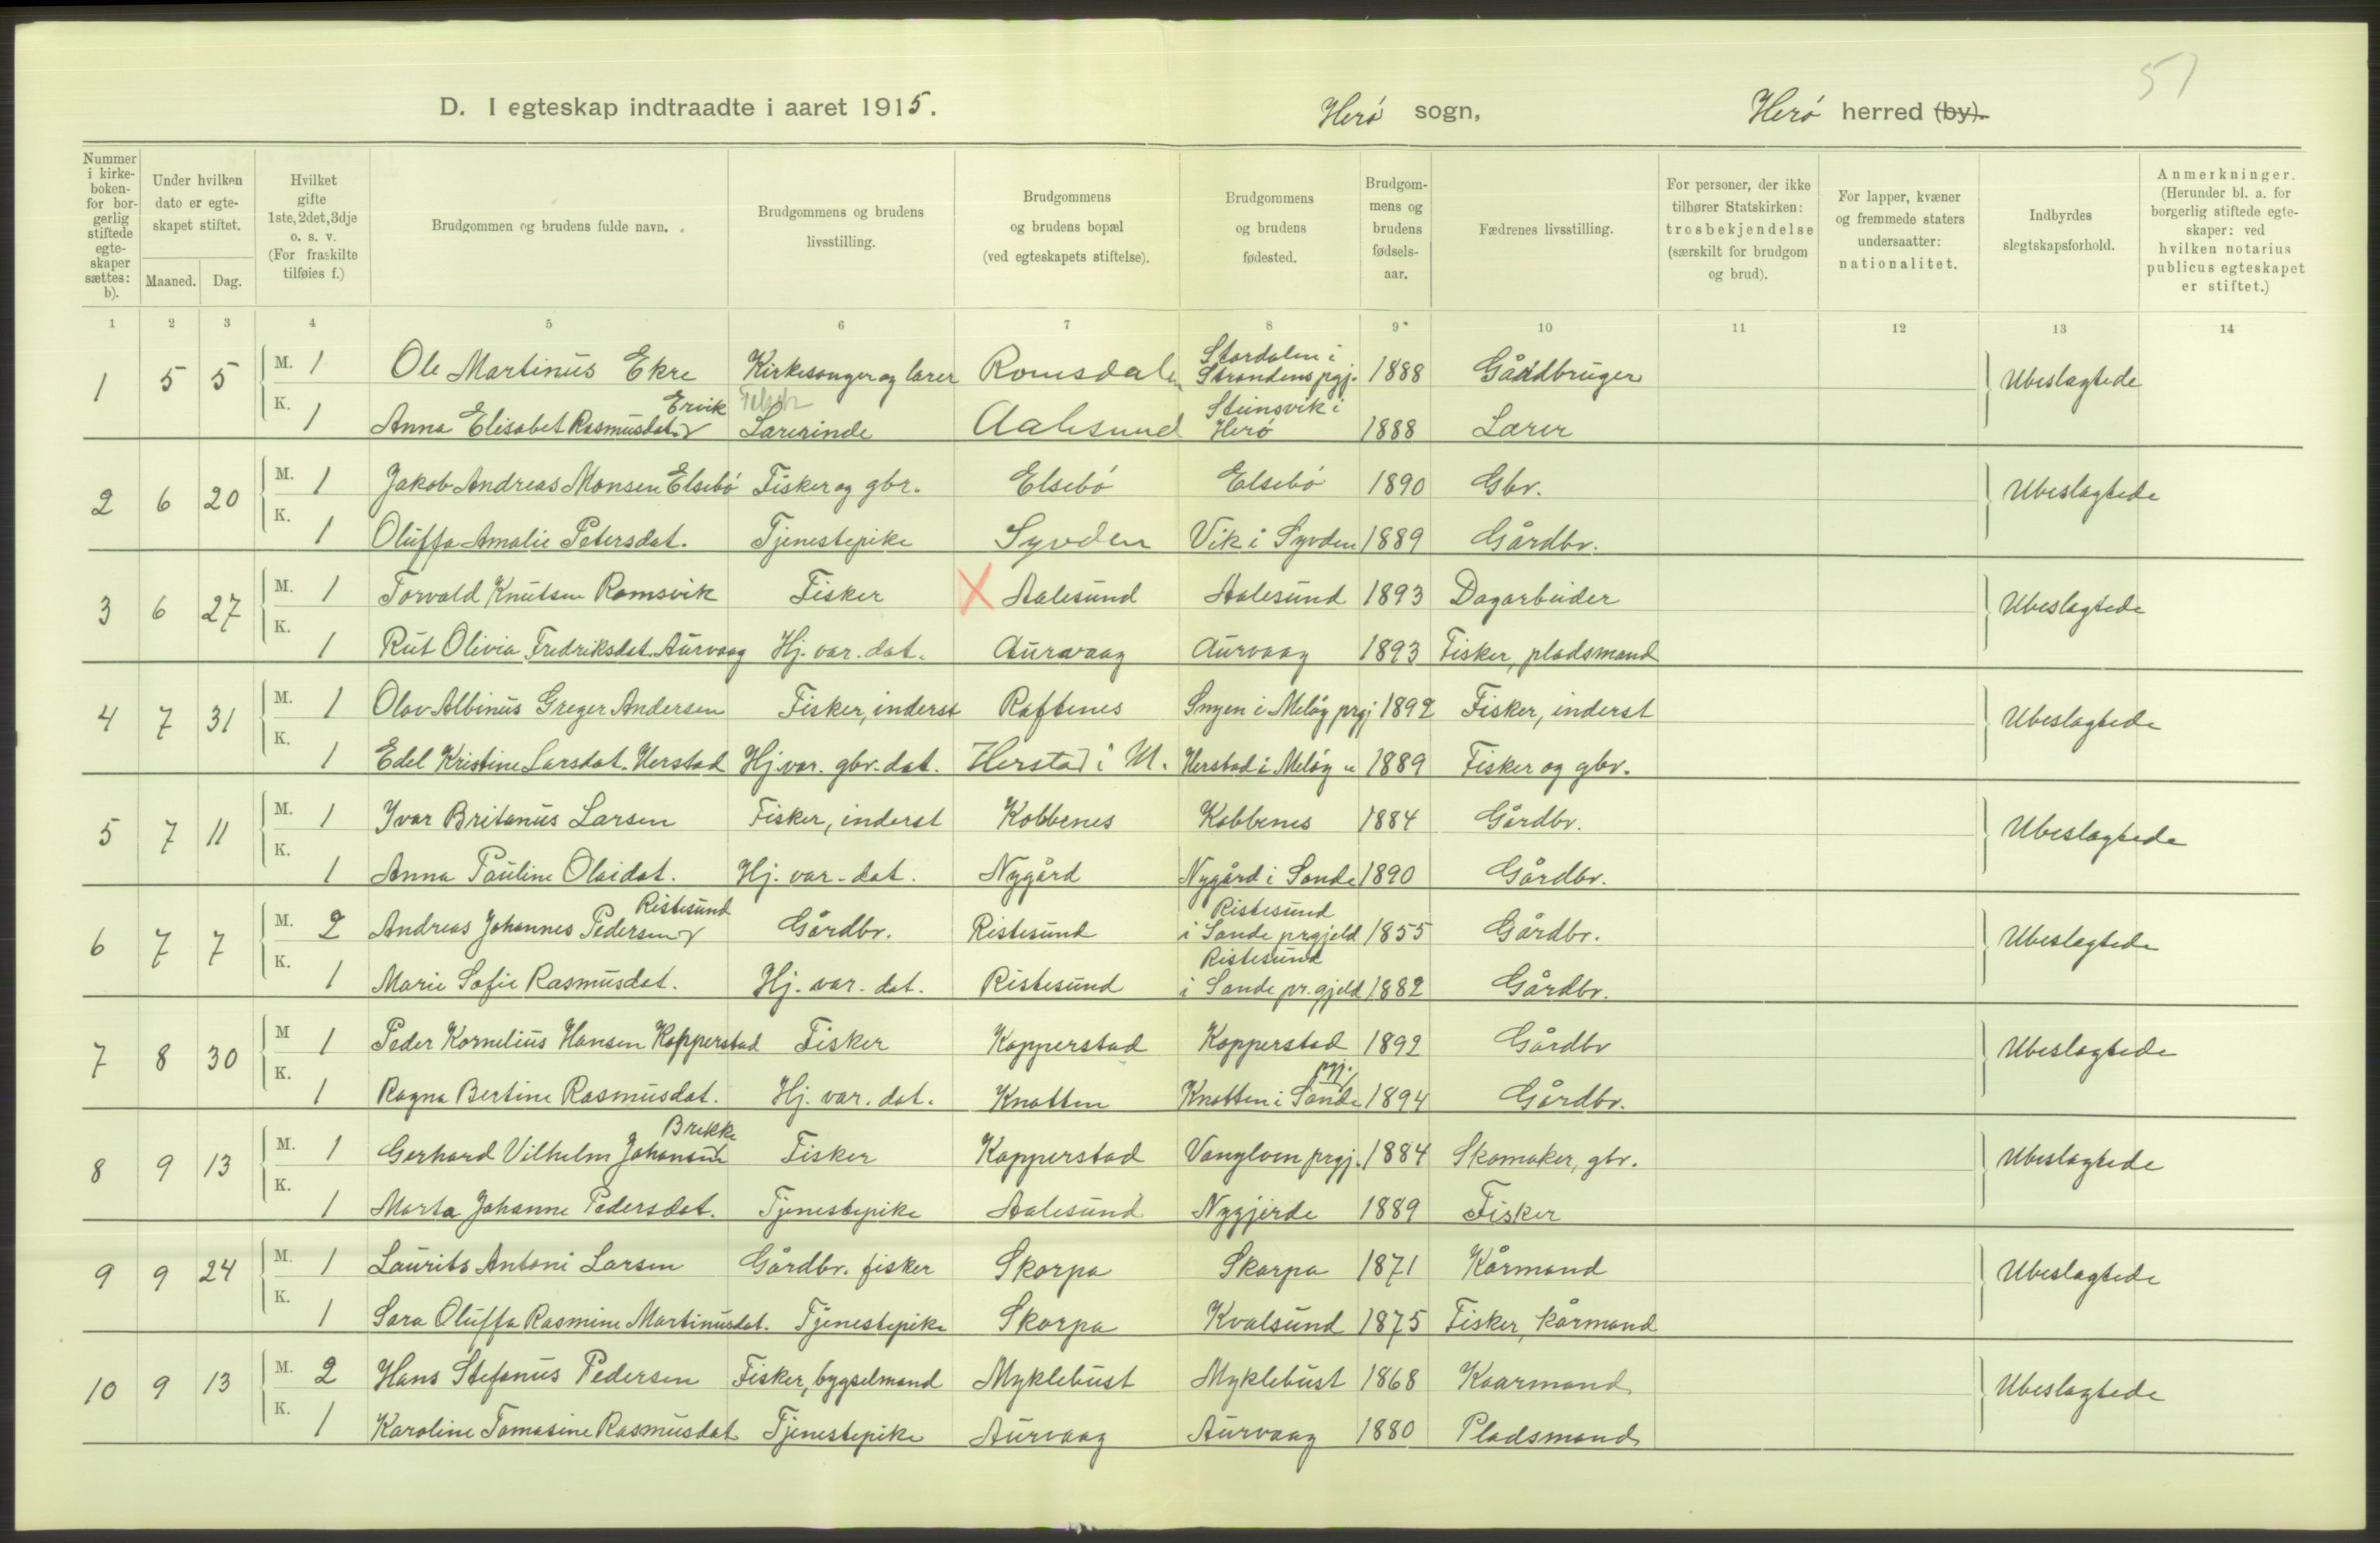 51
D. I egteskap indtraadte i aaret 1915. Herö sogn, Herö herred (by).
Nummer i kirkeboken- for borgerlig stiftede egteskaper sættes: b).
Under hvilken dato er egteskapet stiftet.
Maaned. Dag.
Hvilket gifte 1ste, 2det, 3dje o. s. v. (For fraskilte tilføies f.)
Brudgommen og brudens fulde navn.
Brudgommens og brudens livsstilling.
Brudgommens og brudens bopæl (ved egteskapets stiftelse).
Brudgommens og brudens fødested.
Brudgommens og brudens fødselsaar.
Fædrenes livsstilling.
For personer, der ikke tilhører Statskirken: trosbekjendelse (særskilt for brudgom og brud).
For lapper, kvæner og fremmede staters undersaatter: nationalitet.
Indbyrdes slegtskapsforhold.
Anmerkninger. (Herunder bl. a. for borgerlig stiftede egteskaper: ved hvilken notarius publicus egteskapet er stiftet.)
1 2 3 4 5 6 7 8 9 10 11 12 13 14
1 5 5 M. 1 Ole Martinus Ekre Kirkesanger og lærer Romsdalen Stordalen i Strandens pgj. 1888 Gårdbruger Ubeslagtede
K. 1 Anna Elisabet Rasmusdat. Ervik Lærerinde Aalesund Steinsvik i Herö 1888 Lærer
2 6 20 M. 1 Jakob Andreas Monsen Elsebö Fisker og gbr. Elsebö Elsebö 1890 Gbr. Ubeslagtede
K. 1 Oluffa Amalie Petersdat. Tjenestepike Syvden Vik i Syvden 1889 Gårdbr.
3 6 27 M. 1 Torvald Knutsen Ramsvik Fisker X Aalesund Aalesund 1893 Dagarbeider Ubeslagtede
K. 1 Rut Olivia Fredriksdat. Aurvaag Hj. var. dat. Aurvaag Aurvaag 1893 Fisker, pladsmand
4 7 31 M. 1 Olav Albinus Greger Andersen Fisker, inderst Raftenes Snyen i Melöy prgj 1892 Fisker, inderst Ubeslagtede
K. 1 Edel Kristine Larsdat. Herstad Hj. var. gbr. dat. Herstad i M. Herstad i Melöy " 1889 Fisker og gbr.
5 7 11 M. 1 Ivar Britanus Larsen Fisker, inderst Kobbenes Kobbenes 1884 Gårdbr. Ubeslagtede
K. 1 Anna Pauline Olaidat. Hj. var. dat. Nygård Nygård i Sande 1890 Gårdbr.
6 7 7 M. 2 Andreas Johannes Pedersen Ristesund Gårdbr. Ristesund Ristesund i Sande prgjeld 1855 Gårdbr. Ubeslagtede
K. 1 Marie Sofie Rasmusdat. Hj. var. dat. Ristesund Ristesund i Sande pr. gjeld 1882 Gårdbr.
7 8 30 M 1 Peder Kornelius Hansen Kopperstad Fisker Kopperstad Kopperstad 1892 Gårdbr Ubeslagtede
K. 1 Ragna Bertine Rasmusdat. Hj. var. dat. Knotten Knotten i Sande prj. 1894 Gårdbr.
8 9 13 M. 1 Gerhard Vilhelm Johansen Brekke Fisker Kopperstad Vanylven prgj. 1884 Skomaker, gbr. Ubeslagtede
K. 1 Marta Johanne Pedersdat. Tjenestepike Aalesund Nygjerde 1889 Fisker
9 9 24 M. 1 Laurits Antoni Larsen Gårdbr. fisker Skorpa Skorpa 1871 Kårmand Ubeslagtede
K. 1 Sara Oluffa Rasmine Martinusdat. Tjenestepike Skorpa Kvalsund 1875 Fisker, kårmand
10 9 13 M. 2 Hans Stefanus Pedersen Fisker, bygselmand Myklebust Myklebust 1868 Kaarmand Ubeslagtede
K. 1 Karoline Tomasine Rasmusdat Tjenestepike Aurvaag Aurvaag 1880 Pladsmand